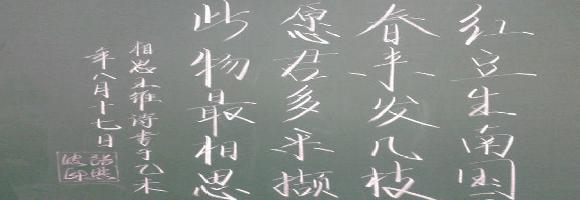 红豆生南国
春来发几枝
愿君多采撷
此物最相思
相思王维诗书于乙未
年八月十七日